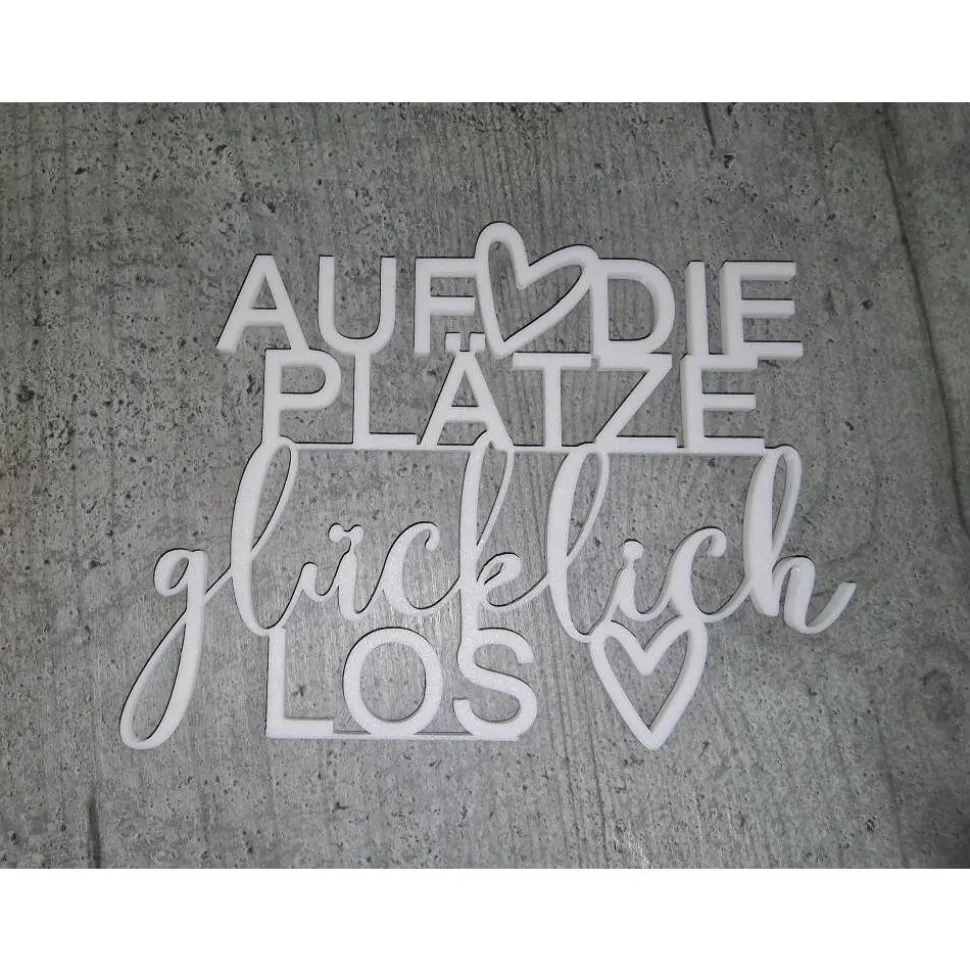 AUF DIE
PLÄTZE
glücklich
LOS